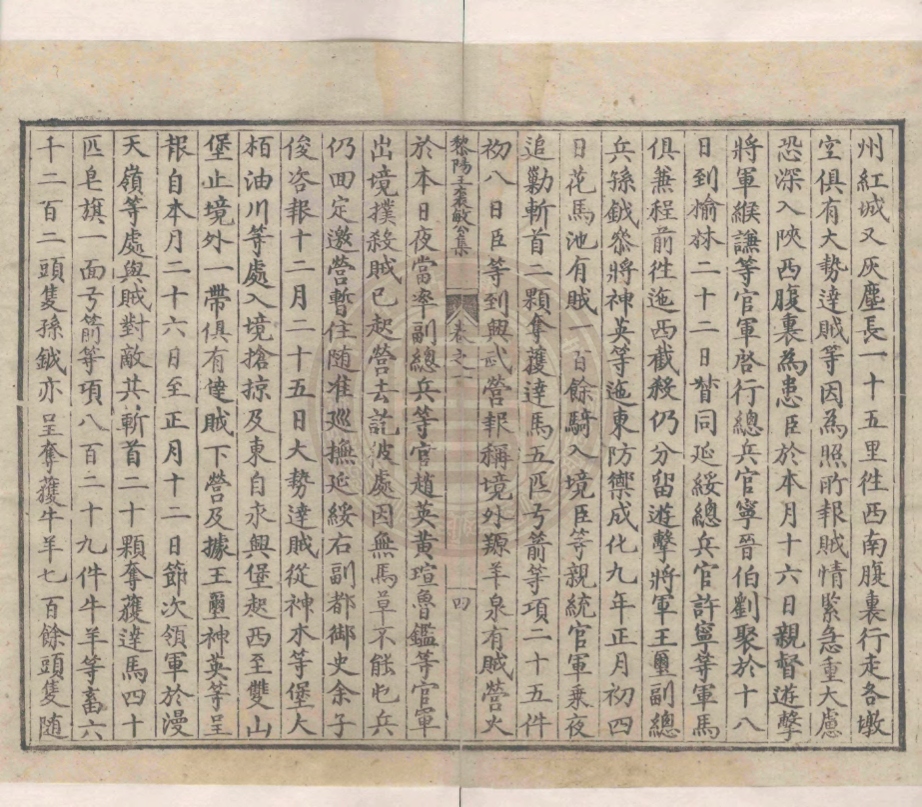 州紅城又灰塵長一十五里徃西南腹裏行走各墩
空俱有大勢達賊等因為照所報賊情緊急重大慮
恐深入陜西腹裏為患臣於本月十六日親督遊擊
將軍緱謙等官軍啓行總兵官寧晉伯劉聚於十八
日到榆林二十二日㑹同延綏總兵官許寧等軍馬
俱兼程前徃迤西截殺仍分留遊擊將軍王璽副總
兵孫鉞叅將神英等迤東防禦成化九年正月初四
日花馬池有賊一百餘騎入境臣等親統官軍乗夜
追勦斬首二顆奪獲達馬五匹弓箭等項二十五件
初八日臣等到興武營報稱境外羱羊泉有賊營火
黎陽王襄敏公集 卷之一 四
於本日夜當率副總兵等官趙英黄瑄魯鑑等官軍
出境撲殺賊已起營去訖彼處因無馬草不能屯兵
仍回定邊營暫住随准廵撫延綏右副都御史余子
俊咨報十二月二十五日大勢達賊從神木等堡大
栢油川等處入境搶掠及東自永興堡起西至雙山
堡止境外一帶俱有達賊下營及據王璽神英等呈
報自本月二十六日至正月十二日節次領軍於漫
天嶺等處與賊對敵共斬首二十顆奪獲達馬四十
匹皂旗一面弓箭等項八百二十九件牛羊等畜六
千二百二頭隻孫鉞亦呈奪獲牛羊七百餘頭隻随